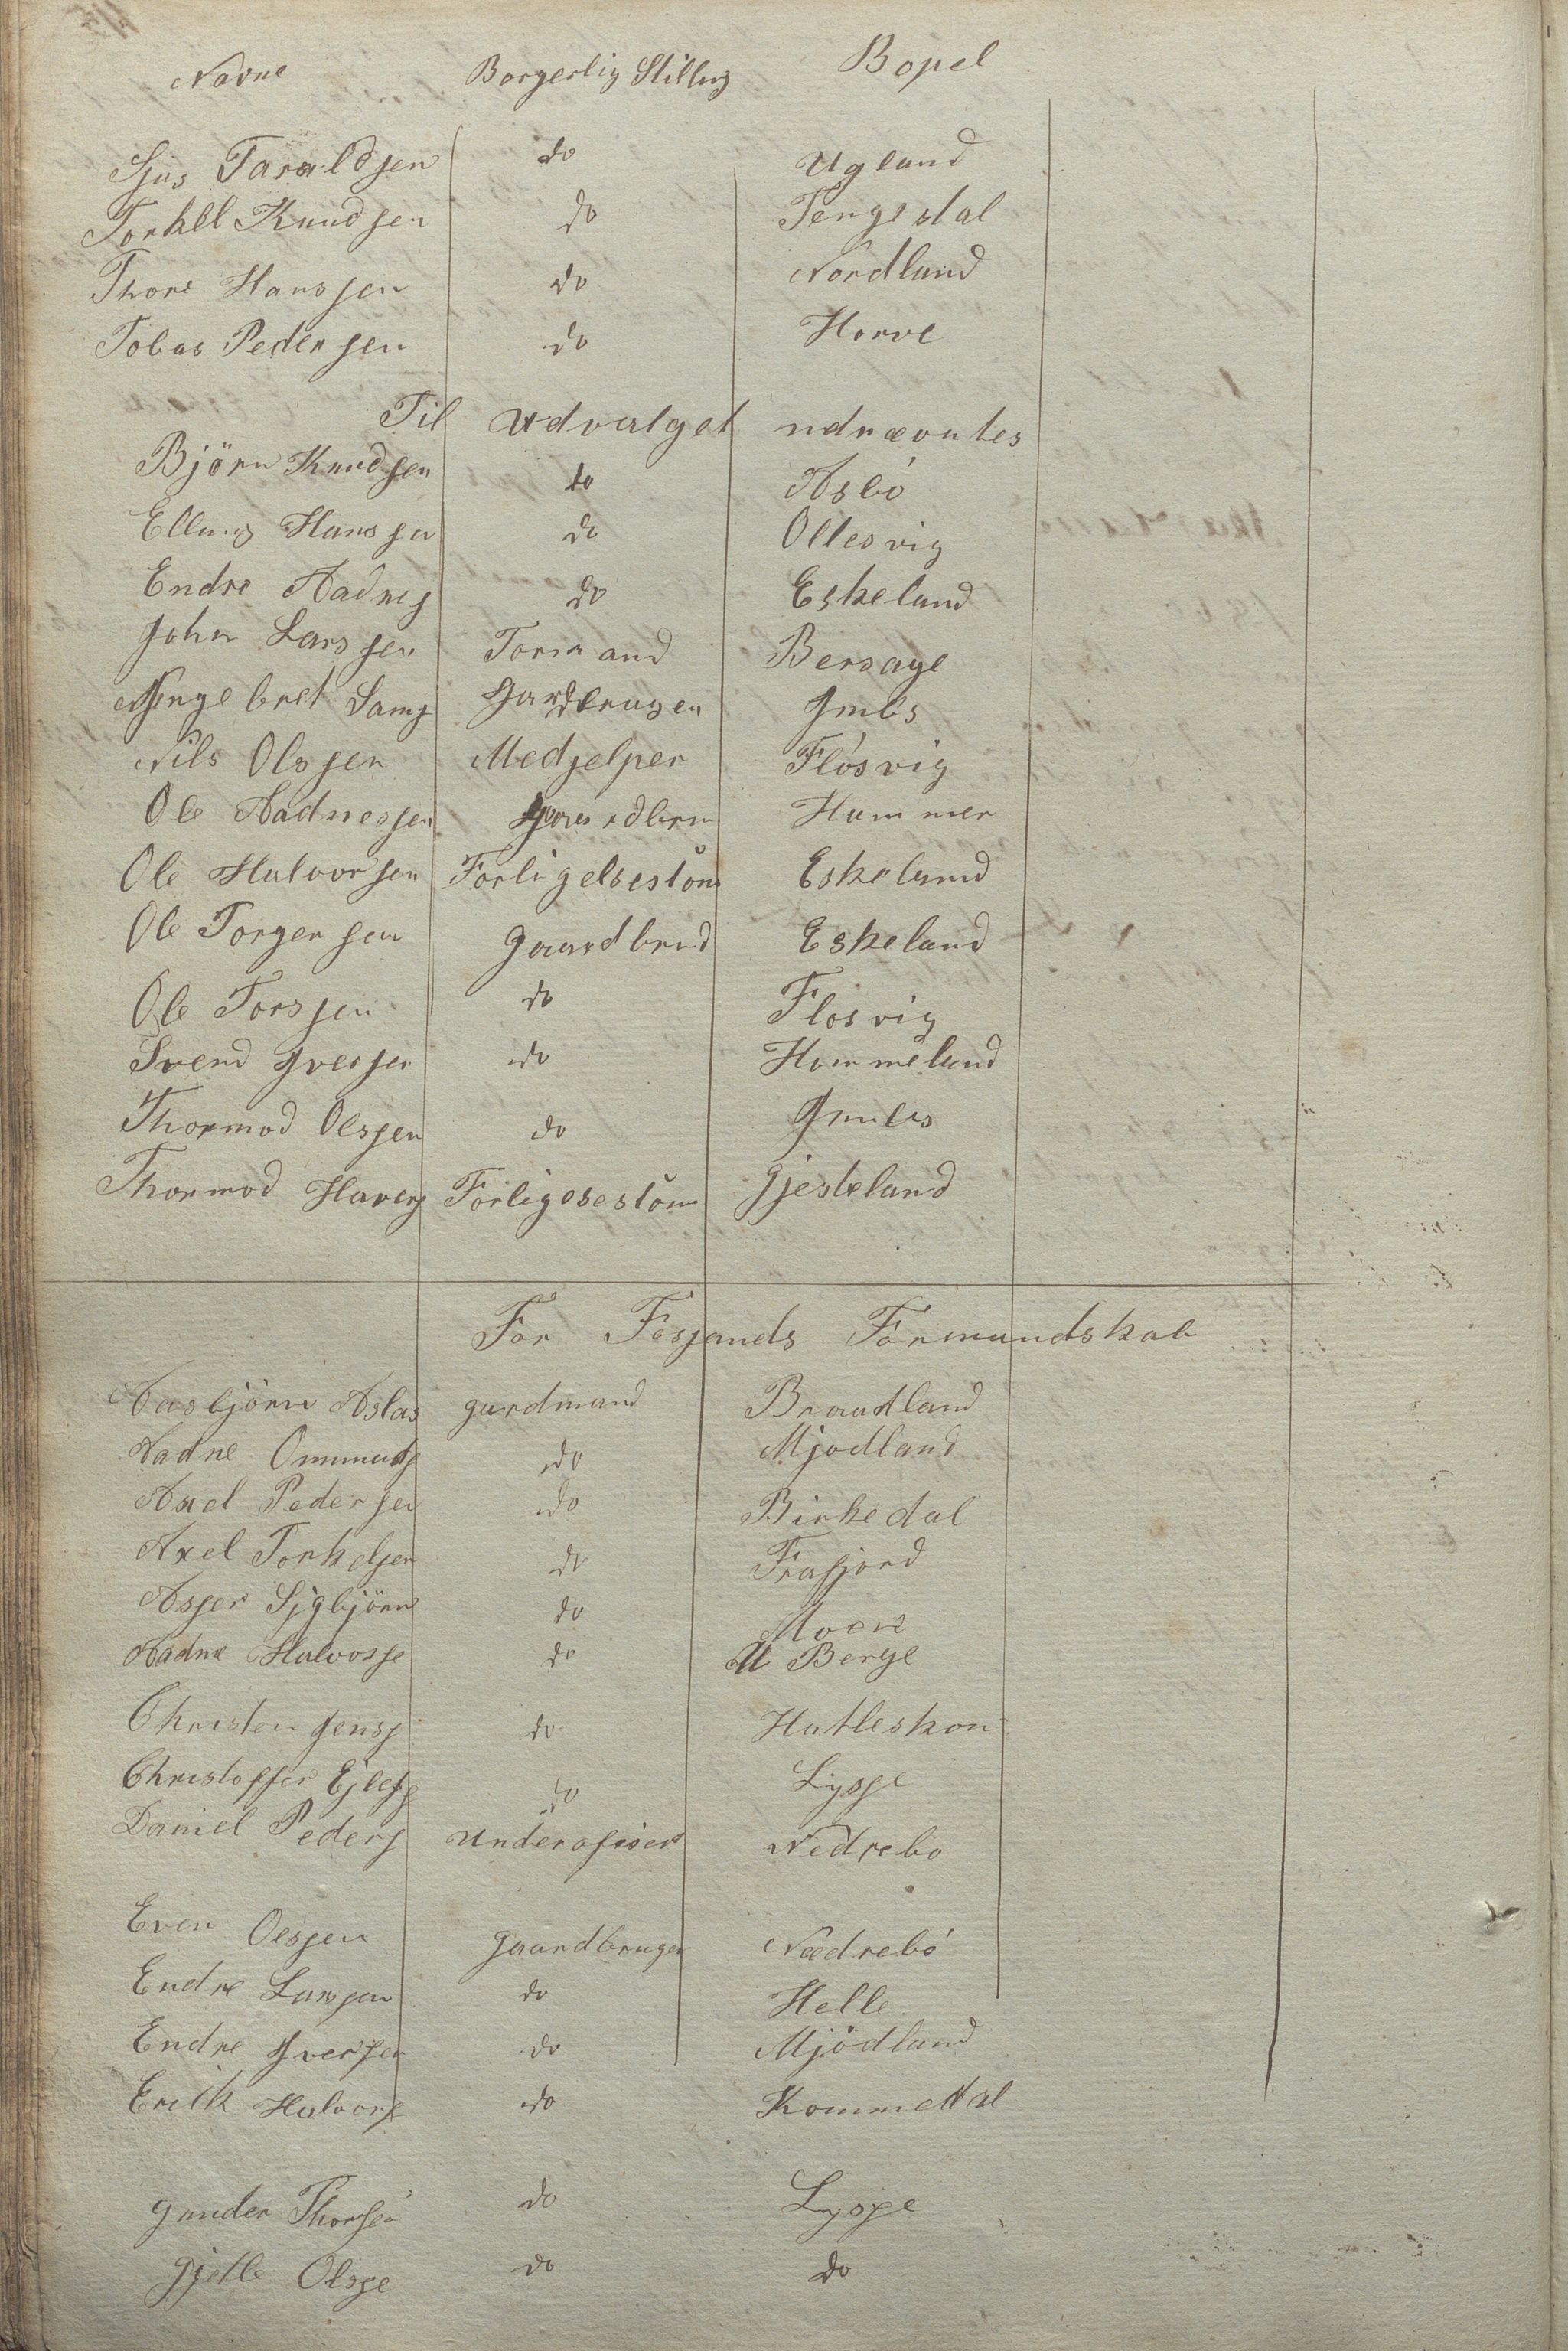 Navne Borgerlig Stilling Bopel
Sjus Taraldsen do Ugland
Torkel Knudsen do Tengesdal
Thore Hanssen do Nordland
Tobas Pedersen do Horve
Til Udvalget udnævntes
Björn Knudsen do Asbö
Elling Hanssen do Ollesvig
Endre Aadnes do Eskeland
John Larssen Formand Bersage
Ingebret Lars Gardbrugen Imbs
Nils Olssen Medjelper Flösvig
Ole Aadnessen Gaardbru Hammer
Ole Halvorsen Forligelsestom Eskeland
Ole Torgersen Gaardbrud Eskeland
Ole Torssen do Flosvig
Svend Iversen do Hommeland
Thormod Olssen do Imbs
Thormod Havers Forligesestom Gjesteland
For Fosjands Formandskab
Aasbjörn Aslas gardmand Braadland
Aadne Ommunds do Mjodland
Axel Pedersen do Birkedal
Axel Torkelsen do Frafjord
Asser Sigbjörn do Moen
Aadne Halvorse do U Berge
Christen Jenss do Hatleskon
Christoffer Ejlefs do Lysse
Daniel Peders Underofiser Nedrebo
Even Olssen Gaardbruger Nædrebö
Endre Larssen do Helle
Endre Iversen do Mjödland
Erik Halvors do Kommedal
Gunder Thorsen do Lysse
Gjetle Olsse do do